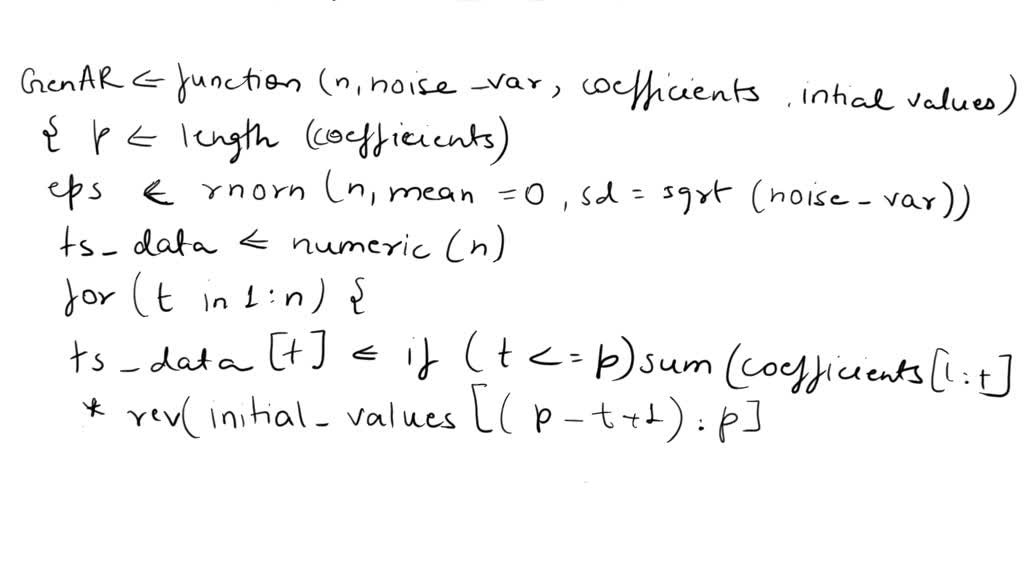 GenAR ← function (n, noise_var, coefficients, intial values)
{ p ← length (coefficients)
eps ← rnorn (n, mean = 0, sd = sqrt (noise_var))
ts_data ← numeric (n)
for (t in 1:n) {
ts_data [t] ← if (t <= p) sum (coefficients [1:t]
* rev( initial_values [( p-t+1) : p]